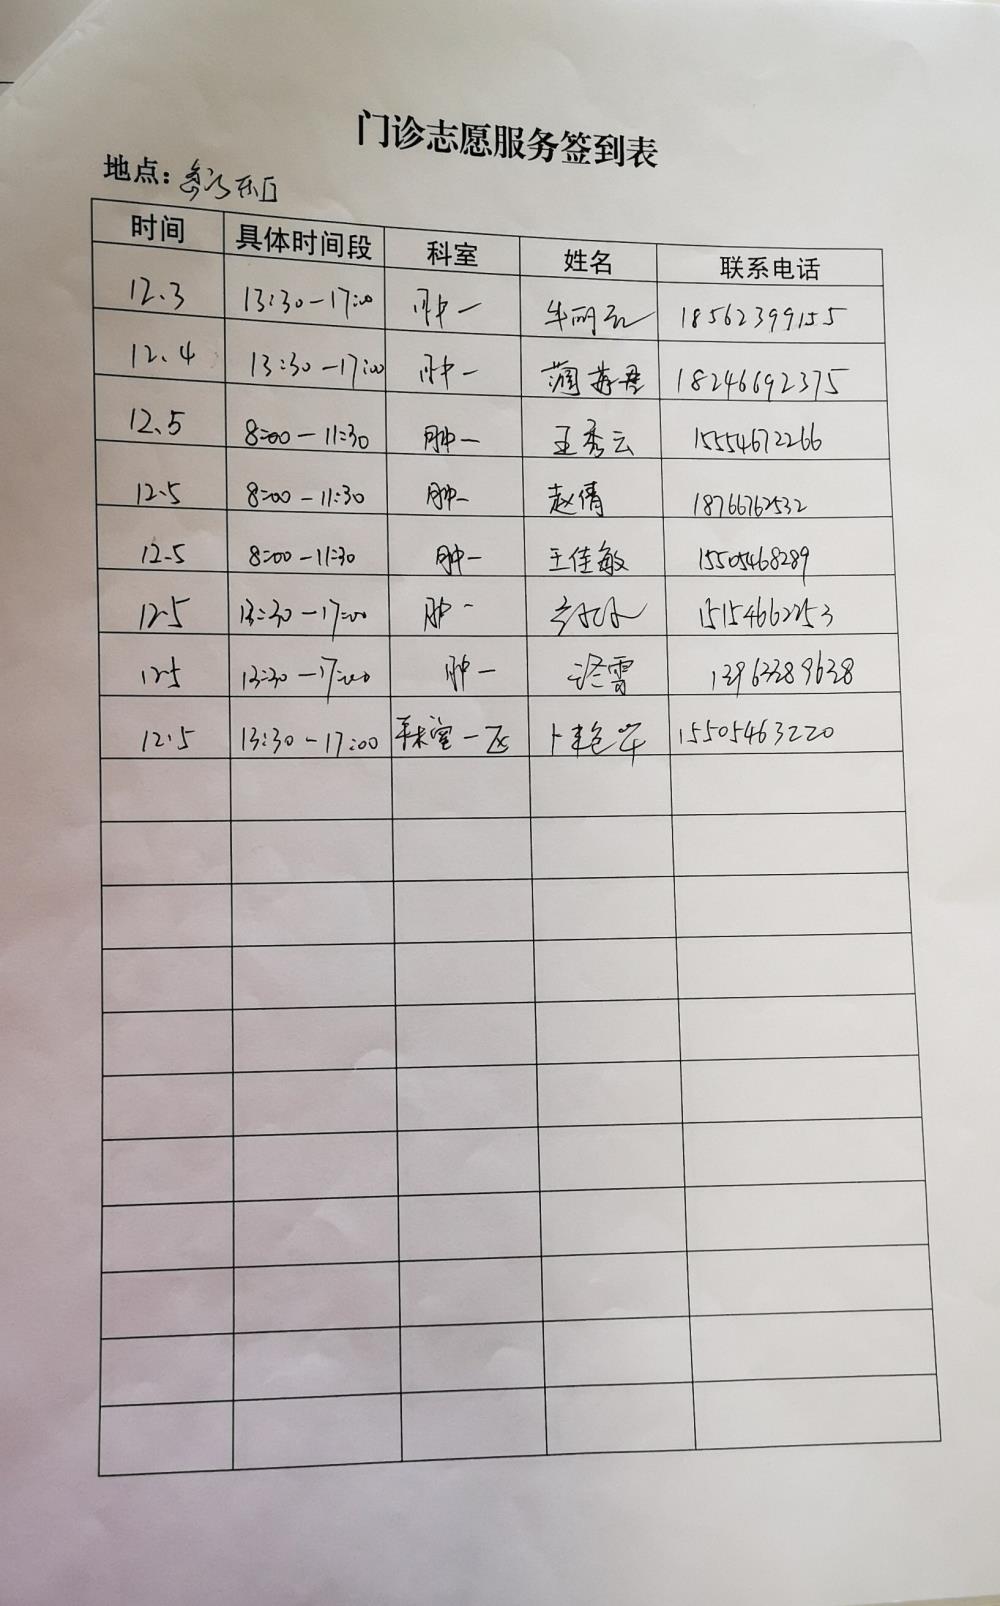 门诊志愿服务签到表
地点：
时间 具体时间段 科室 姓名 联系电话
12.3 13:30-17:00 肿一 18562399155
12.4 13:30-17:00 肿一 18246692375
12.5 8:00-11:30 肿一 王秀云 15554672266
12.5 8:00-11:30 肿一 赵倩 18766762532
12.5 8:00-11:30 肿一 王佳敏 15505468289
12.5 13:30-17:00 肿一 15154662253
12.5 13:30-17:00 肿一
12.5 13:30-17:00 一区 15505463220